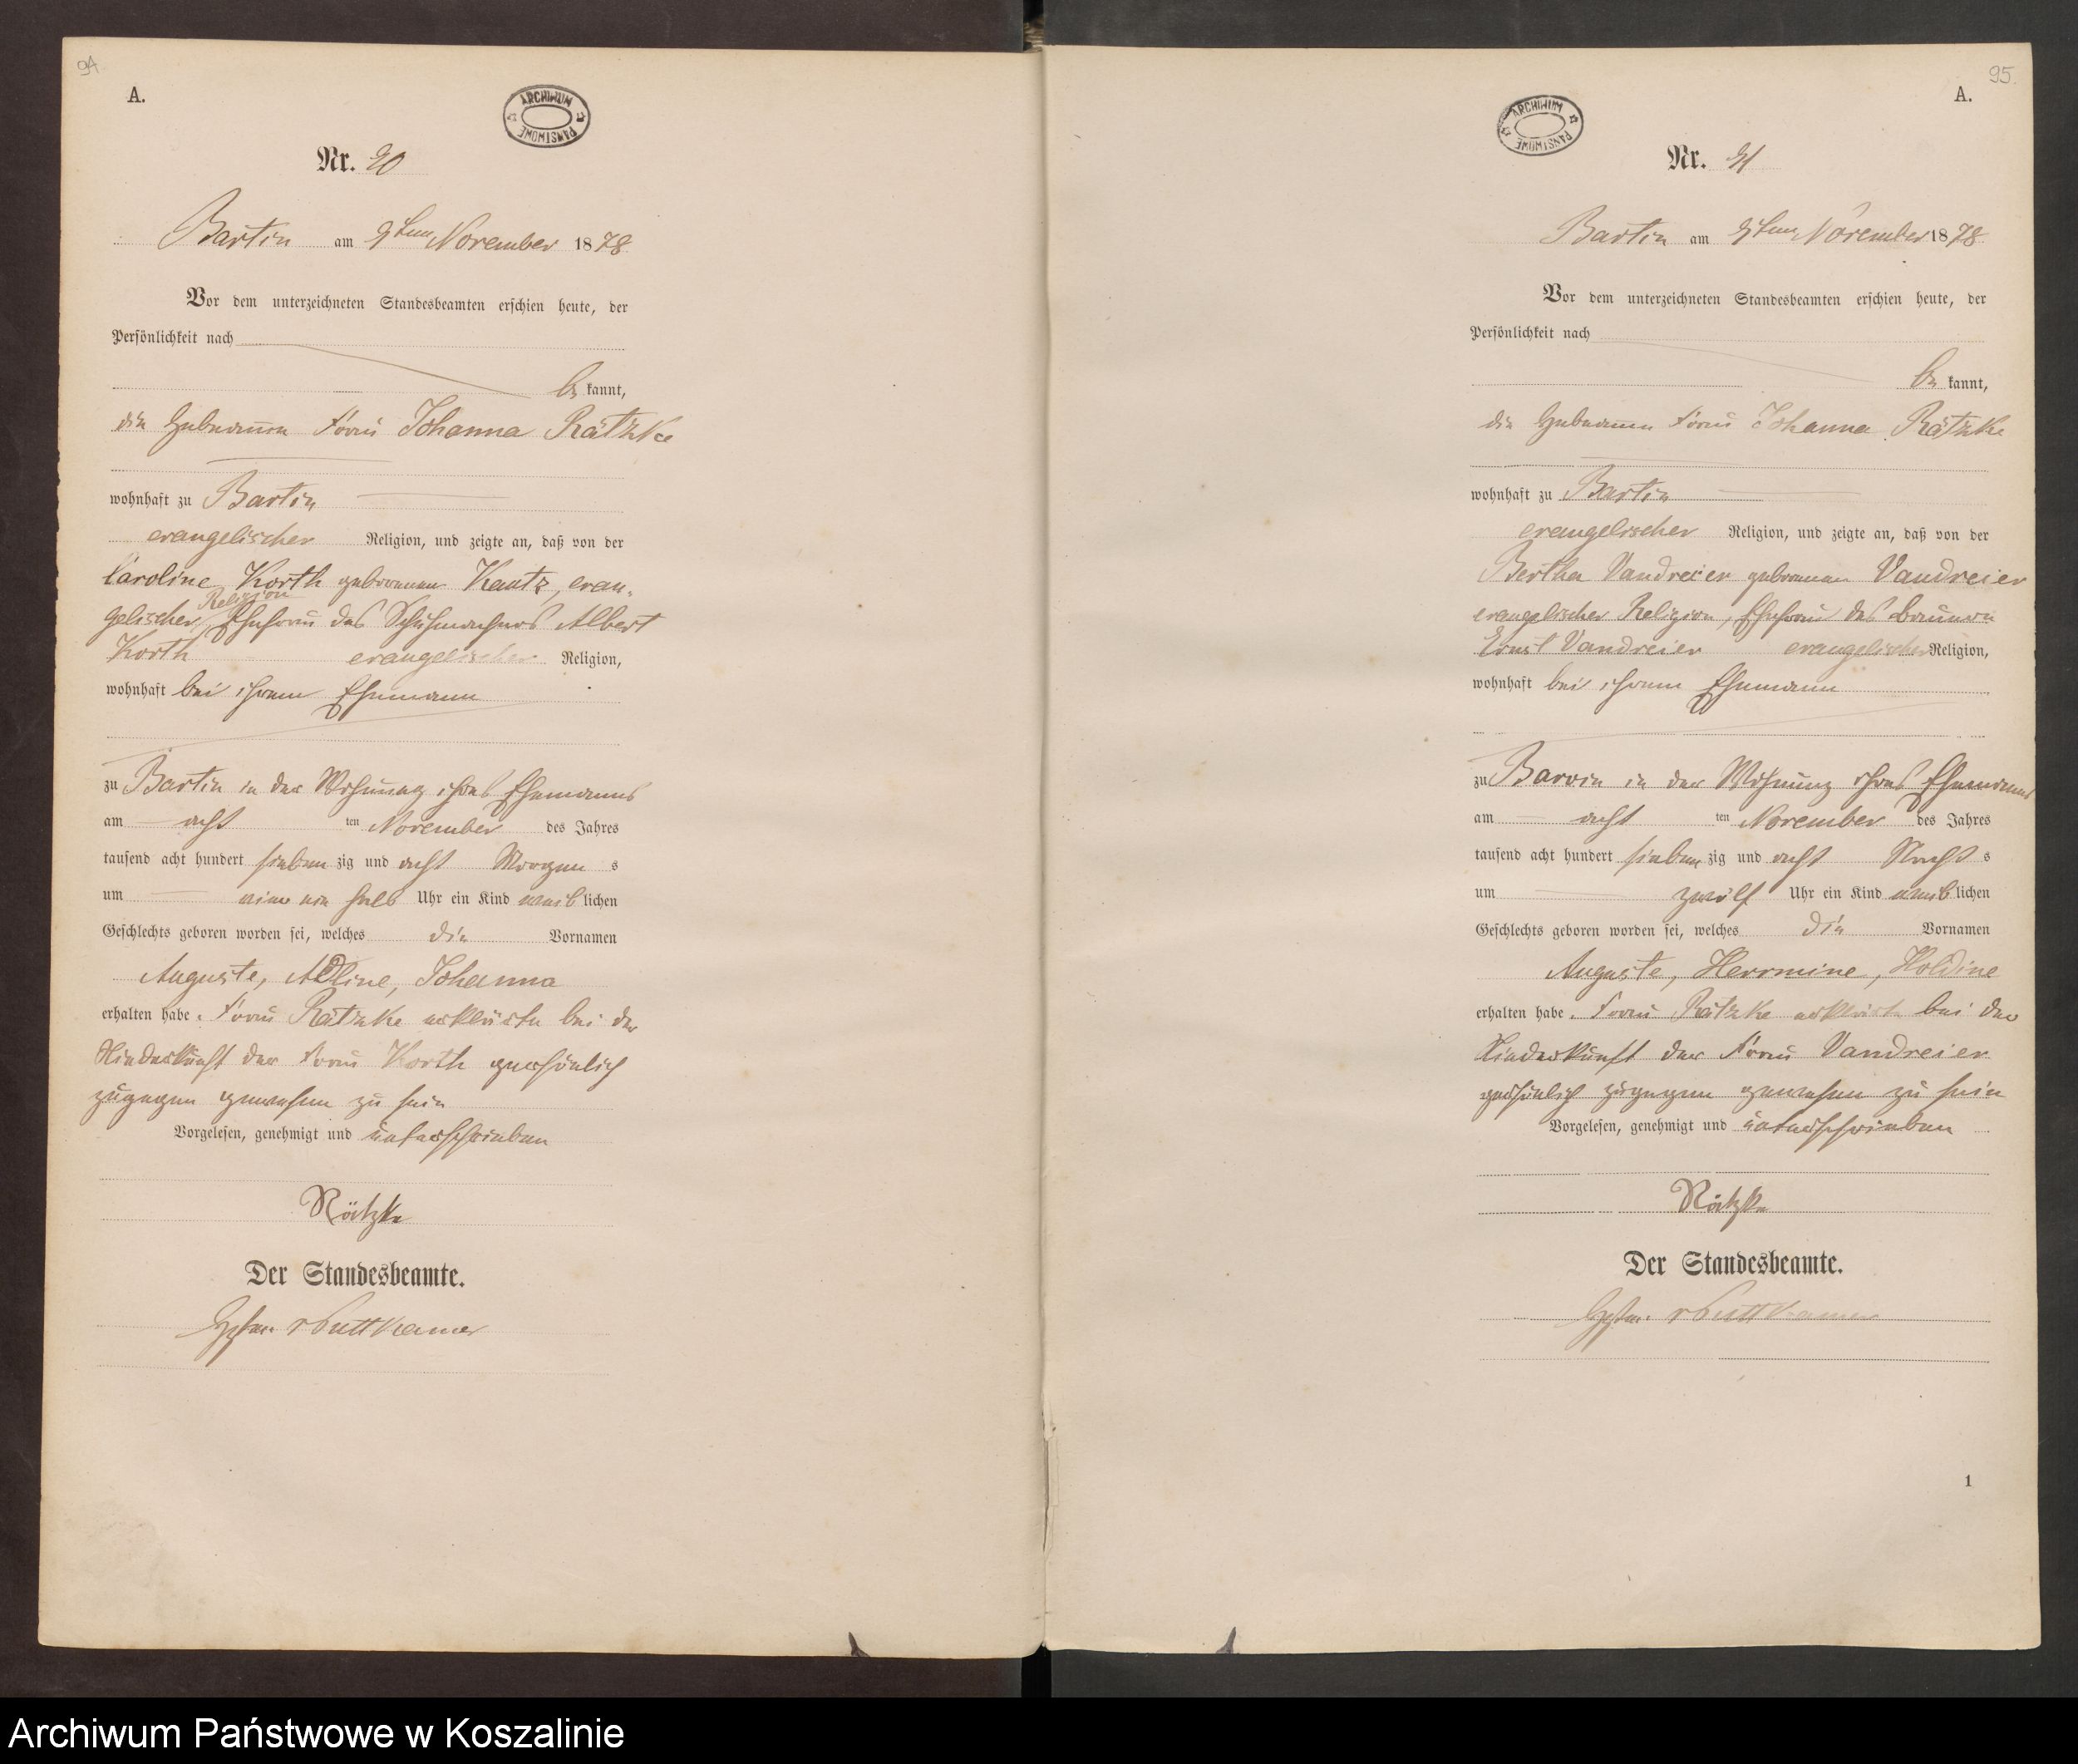 94
A.
ARCHIWUM PAŃSTWOWE
Nr. 90
Bartin am 9ten November 1878
Vor dem unterzeichneten Standesbeamten erschien heute, der
Persönlichkeit nach
be kannt,
die Hebeamme Frau Johanna Rätzke
wohnhaft zu Bartin
evangelischer Religion, und zeigte an, daß von der
Caroline Korth geborenen Kautz, evan-
Religion
gelischer, Ehefrau des Schuhmachers Albert
Korth evangelischer Religion,
wohnhaft bei ihrem Ehemann
zu Bartin in der Wohnung ihres Ehemanns
am acht ten November des Jahres
tausend acht hundert sieben zig und acht Morgen s
um ein halb Uhr ein Kind weib lichen
Geschlechts geboren worden sei, welches die Vornamen
Auguste, Adline, Johanna
erhalten habe. Frau Rätzke erklärte bei der
Niederkunft der Frau Korth persönlich
zugegen gewesen zu sein
Vorgelesen, genehmigt und unterschrieben
Rätzke
Der Standesbeamte.
v Puttkamer
95.
A.
ARCHIWUM PAŃSTWOWE
Nr. 91
Bartin am 9ten November 1878
Vor dem unterzeichneten Standesbeamten erschien heute, der
Persönlichkeit nach
be kannt,
die Hebeamme Frau Johanna Rätzke
wohnhaft zu Bartin
evangelischer Religion, und zeigte an, daß von der
Bertha Vandreier geborenen Vandreier
evangelischer Religion, Ehefrau des Brauers
Ernst Vandreier evangelischer Religion,
wohnhaft bei ihrem Ehemann
zu Barvin in der Wohnung ihres Ehemanns
am acht ten November des Jahres
tausend acht hundert sieben zig und acht Nacht s
um zwölf Uhr ein Kind weib lichen
Geschlechts geboren worden sei, welches die Vornamen
Auguste, Herrmine, Holdine
erhalten habe. Frau Rätzke erklärte bei der
Niederkunft der Frau Vandreier
persönlich zugegen gewesen zu sein
Vorgelesen, genehmigt und unterschrieben
Rätzke
Der Standesbeamte.
v Puttkamer
1
Archiwum Państwowe w Koszalinie